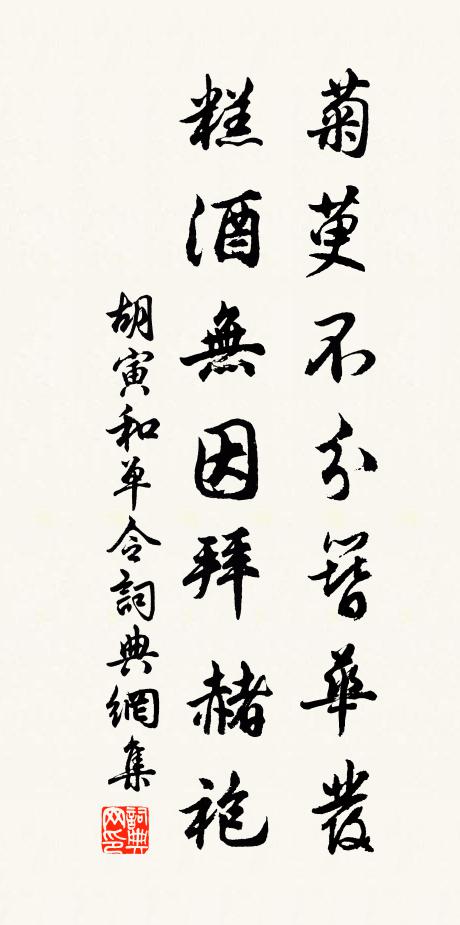 菊萸不分簪華髮
糕酒無因拜赭袍
胡寅和單令詞典網集
詞典網印